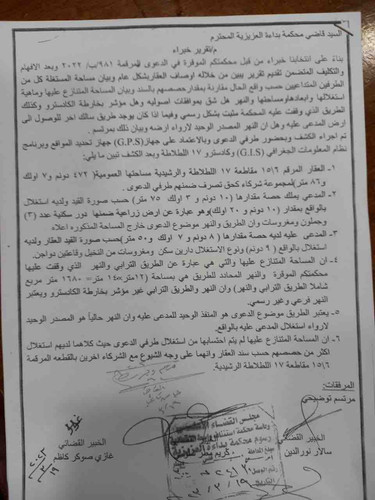 السيد قاضي محكمة بداءة العزيزية المحترم
م/تقرير خبراء
بناءً على انتخابنا خبراء من قبل محكمتكم الموقرة في الدعوى المرقمة ٩٨١/ب/٢٠٢٢ وبعد الافهام
والتكليف المتضمن تقديم تقرير يبين من خلاله اوصاف العقار بشكل عام وبيان مساحة المستغلة كل من
الطرفين المتداعيين حسب واقع الحال مقارنة بمقدار حصصهم بالسند وبيان المساحة المتنازع عليها وماهية
استغلالها وابعادها ومساحتها والنهر هل شق بموافقات اصوليه وهل مؤشر بخارطة الكادسترو وكذلك
الطريق الذي وقفت عليه المحكمه مثبت بشكل رسمي وفيما اذا كان يوجد طريق سالك اخر للوصول الى
ارض المدعى عليه وهل ان النهر المصدر الوحيد لارواء ارضه وبيان ذلك بمرتسم .
تم اجراء الكشف وبحضور طرفي الدعوى وبالاعتماد على جهاز (G.P.S) جهاز تحديد المواقع وبرنامج
نظام المعلومات الجغرافي (G.I.S) وكادسترو ١٧ اللطلاطة وبعد الكشف تبين ما يلي:
١- العقار المرقم ١٥/٦ مقاطعة ١٧ اللطلاطة والرشيدية مساحتها العمومية (٤٧٢ دونم و٧ اولك
و٨٦ متر) لمجموعة شركاء كحق تصرف ضمنهم طرفي الدعوى .
٢- المدعي يملك حصة مقدارها (١٠ دونم و ٣ اولك ٧٥ متر) حسب صورة القيد ولديه استغلال
بالواقع بمقدار (١٠ دونم و ٢٠ اولك) وهو عبارة عن ارض زراعية ضمنها دور سكنية عدد (٣)
وجملون ومغروسات وان الطريق والنهر موضوع الدعوى خارج المساحة المذكوره اعلاه
٣- المدعى عليه لديه حصة مقدارها ( ٨ دونم و ٧ اولك و ٥٠ متر) حسب صورة القيد العقار ولديه
استغلال بالواقع ( ٩ دونم) ونوع الاستغلال دارين سكن ومغروسات من النخيل وقاعتين دواجن.
٤- ان المساحة المتنازع عليها والتي هي عبارة عن الطريق الترابي والنهر الذي وقفت عليها
محكمتكم الموقرة والنهر المحادد للطريق هي بمساحة (١٢متر×١٤٠متر = ١٦٨٠ متر مربع
شاملا الطريق الترابي والنهر) وان النهر والطريق الترابي غير مؤشر بخارطة الكادسترو ويعتبر
النهر فرعي وغير رسمي.
٥- يعتبر الطريق موضوع الدعوى هو المنفذ الوحيد للمدعى عليه وان النهر حالياً هو المصدر الوحيد
لارواء استغلال المدعى عليه بالواقع.
٦- ان المساحة المتنازع عليها لم يتم احتسابها من استغلال طرفي الدعوى حيث كلاهما لديهم استغلال
اكثر من حصصهم حسب سند العقار وانهما على وجه الشيوع مع الشركاء الاخرين بالقطعه المرقمة
١٥/٦ مقاطعة ١٧ اللطلاطة الرشيدية.
المرفقات:
مرتسم توضيحي
الخبير القضائي
سالار نورالدين
الخبير القضائي
غازي صوكر كاظم
مجلس القضاء الاعلى